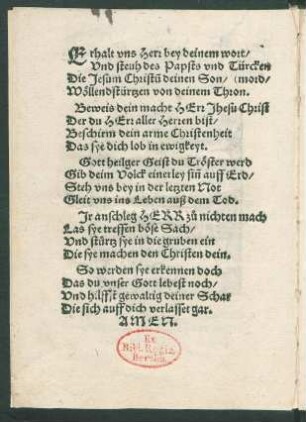 Erhalt vns Herr bey deinem wort/
Vnd steuh des Papsts vnd Türcken
Die Jesum Christū deinen Son/ (mord/
Wöllend stürtzen von deinem Thron.
Beweis dein macht HErr Jhesu Christ
Der du HErr aller Herren bist/
Beschirm dein arme Christenheit
Das sye dich lob in ewigkeyt.
Gott heilger Geist du Tröster werd
Gib deim Volck einerley siñ auff Erd/
Steh vns bey in der letzten Not
Gleit vns ins Leben auß dem Tod.
Jr anschleg HERR zů nichten mach
Las sye treffen böse Sach/
Vnd stürtz sye in die gruben ein
Die sye machen den Christen dein.
So werden sye erkennen doch
Das du vnser Gott lebest noch/
Vnd hilffst gewaltig deiner Schar
Die sich auff dich verlasset gar.
AMEN.
Ex
Bibl. Regia
Berolin.